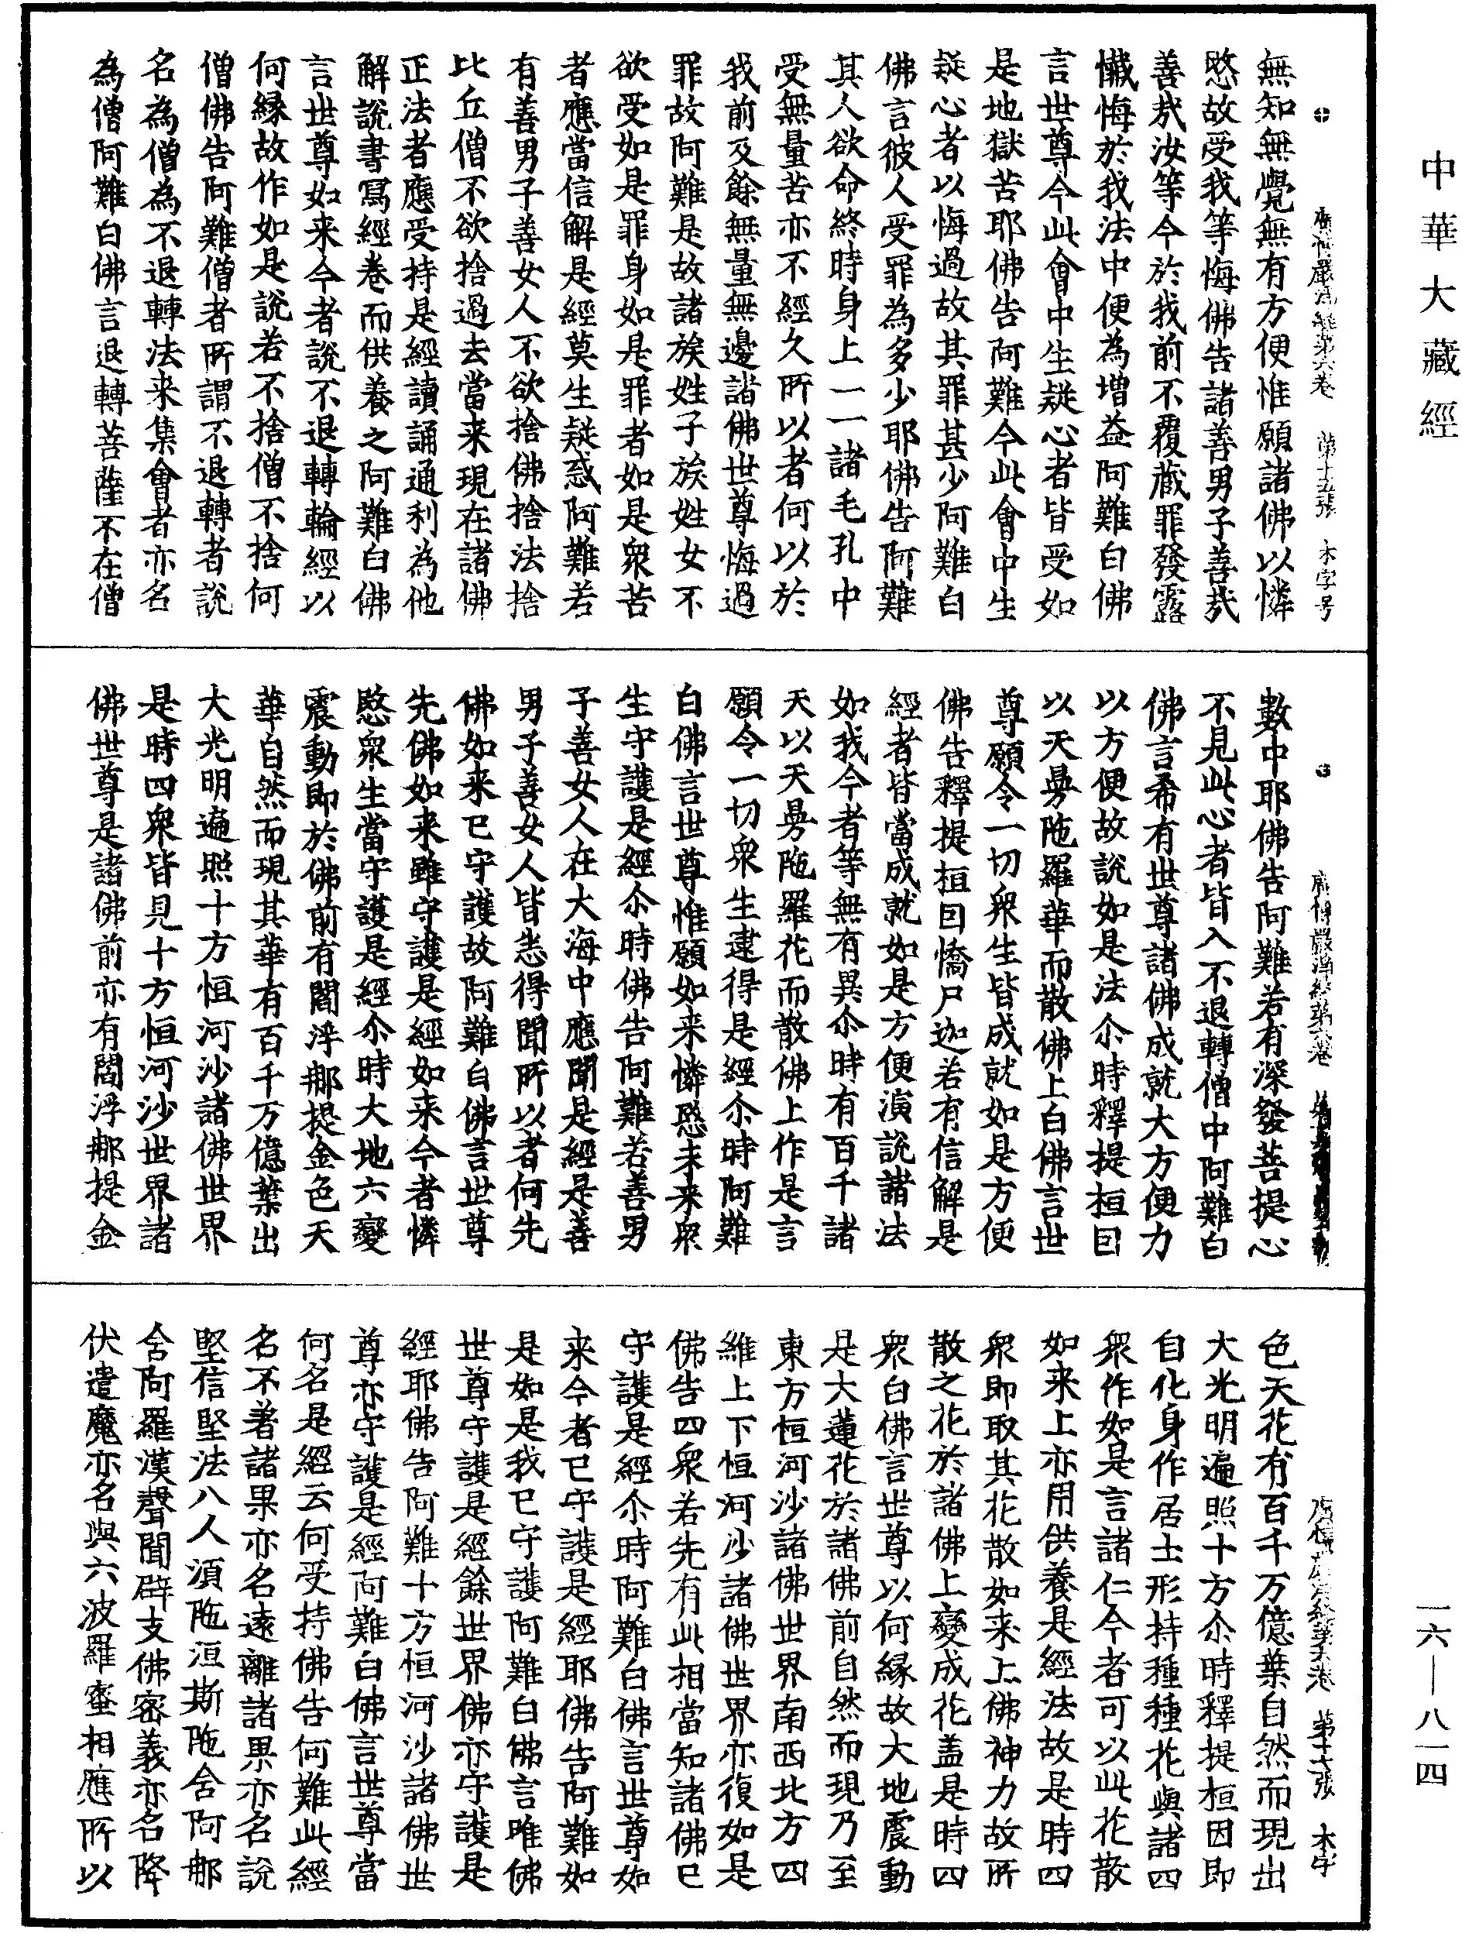 中華大藏經
一六—八一四
廣博嚴淨經第六卷 第十五張 木字号
無知無覺無有方便惟願諸佛以憐
愍故受我等悔佛告諸善男子善哉
善哉汝等今於我前不覆藏罪發露
懺悔於我法中便為增益阿難白佛
言世尊今此會中生疑心者皆受如
是地獄苦耶佛告阿難今此會中生
疑心者以悔過故其罪甚少阿難白
佛言彼人受罪為多少耶佛告阿難
其人欲命終時身上一一諸毛孔中
受無量苦亦不經久所以者何以於
我前及餘無量無邊諸佛世尊悔過
罪故阿難是故諸族姓子族姓女不
欲受如是罪身如是罪者如是衆苦
者應當信解是經莫生疑惑阿難若
有善男子善女人不欲捨佛捨法捨
比丘僧不欲捨過去當来現在諸佛
正法者應受持是經讀誦通利為他
解說書寫經卷而供養之阿難白佛
言世尊如来今者說不退轉輪經以
何緣故作如是說若不捨僧不捨何
僧佛告阿難僧者所謂不退轉者說
名為僧為不退轉法来集會者亦名
為僧阿難白佛言退轉菩薩不在僧
廣博嚴淨經第六卷
數中耶佛告阿難若有深發菩提心
不見此心者皆入不退轉僧中阿難白
佛言希有世尊諸佛成就大方便力
以方便故說如是法尒時釋提桓因
以天曼陁羅華而散佛上白佛言世
尊願令一切衆生皆成就如是方便
佛告釋提桓因憍尸迦若有信解是
經者皆當成就如是方便演說諸法
如我今者等無有異尒時有百千諸
天以天曼陁羅花而散佛上作是言
願令一切衆生逮得是經尒時阿難
白佛言世尊惟願如来憐愍未来衆
生守護是經尒時佛告阿難若善男
子善女人在大海中應聞是經是善
男子善女人皆悉得聞所以者何先
佛如来已守護故阿難白佛言世尊
先佛如来雖守護是經如来今者憐
愍衆生當守護是經尒時大地六變
震動即於佛前有閻浮𨙻提金色天
華自然而現其華有百千万億葉出
大光明遍照十方恒河沙諸佛世界
是時四衆皆見十方恒河沙世界諸
佛世尊是諸佛前亦有閻浮𨙻提金
廣博嚴淨經第六卷 第十七張 木字
色天花有百千万億葉自然而現出
大光明遍照十方尒時釋提桓因即
自化身作居士形持種種花與諸四
衆作如是言諸仁今者可以此花散
如来上亦用供養是經法故是時四
衆即取其花散如来上佛神力故所
散之花於諸佛上變成花盖是時四
衆白佛言世尊以何緣故大地震動
是大蓮花於諸佛前自然而現乃至
東方恒河沙諸佛世界南西北方四
維上下恒河沙諸佛世界亦復如是
佛告四衆若先有此相當知諸佛已
守護是經尒時阿難白佛言世尊如
来今者已守護是經耶佛告阿難如
是如是我已守護阿難白佛言唯佛
世尊守護是經餘世界佛亦守護是
經耶佛告阿難十方恒河沙諸佛世
尊亦守護是經阿難白佛言世尊當
何名是經云何受持佛告阿難此經
名不著諸果亦名遠離諸果亦名說
堅信堅法八人須陁洹斯陁含阿𨙻
含阿羅漢聲聞辟支佛密義亦名降
伏遣魔亦名與六波羅蜜相應所以